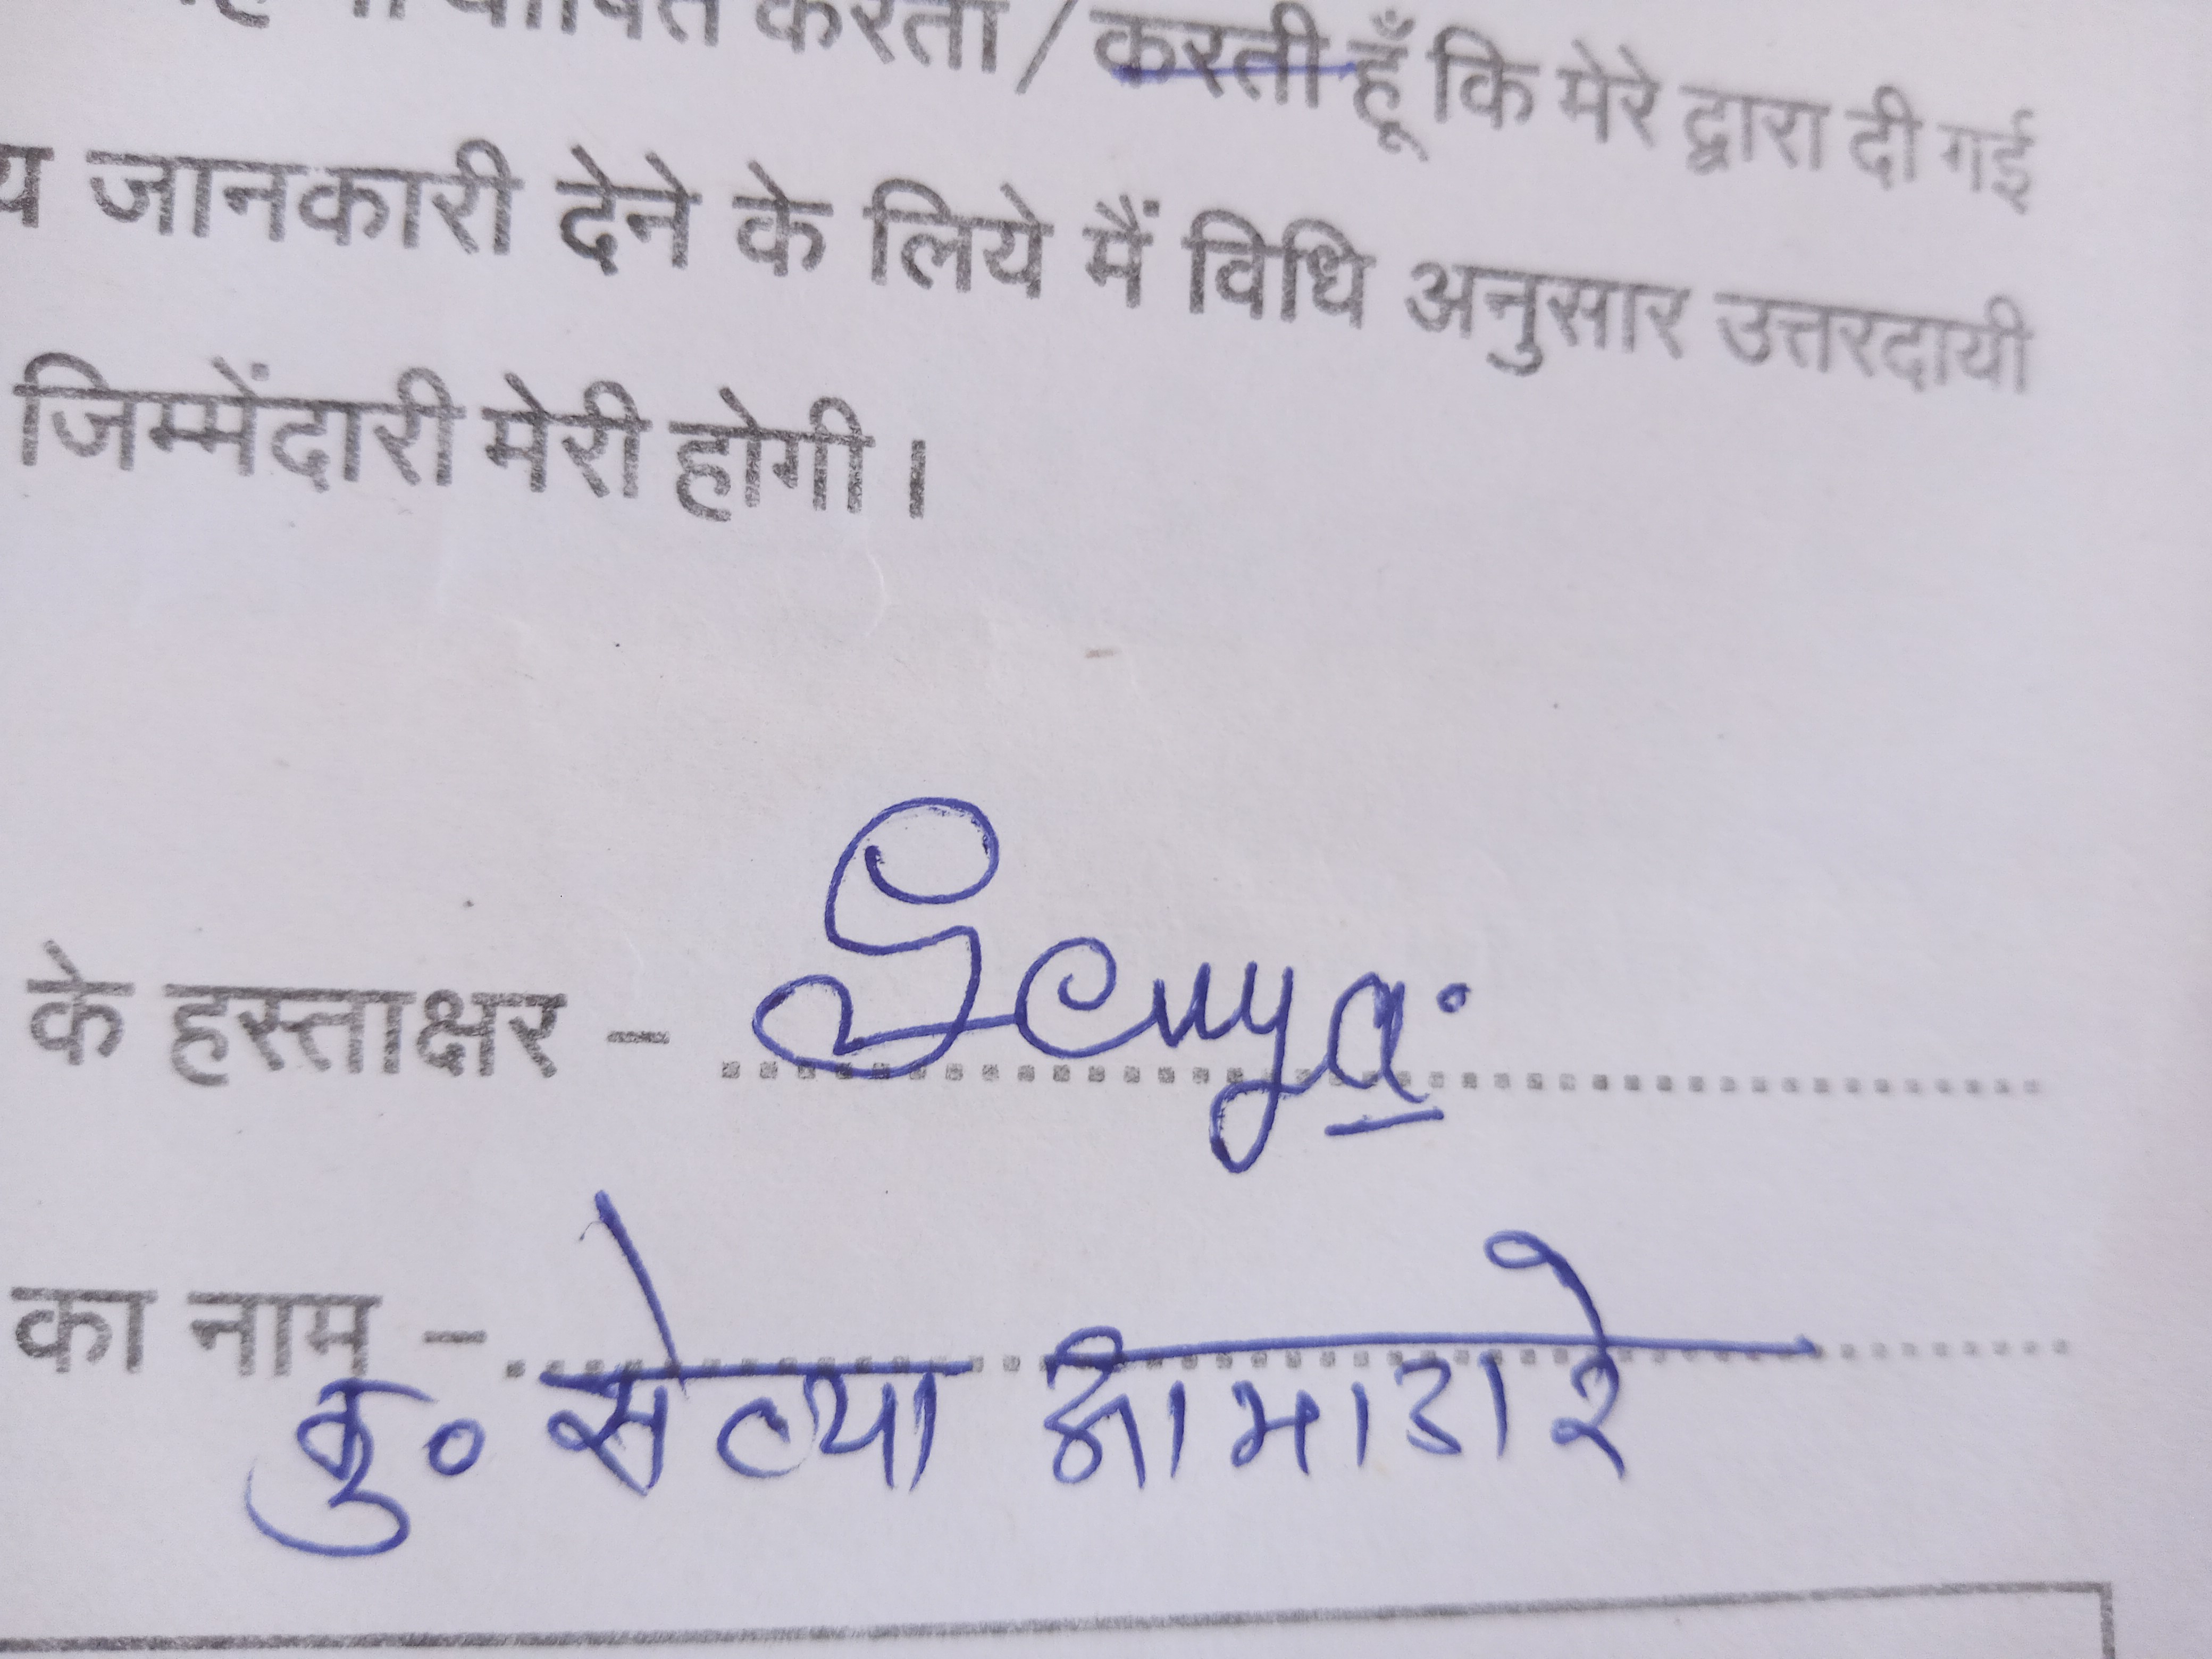 करता / करती हूँ कि मेरे द्वारा दी गई
य जानकारी देने के लिये मैं विधि अनुसार उत्तरदायी
जिम्मेंदारी मेरी होगी।
के हस्ताक्षर -
का नाम -
कु०